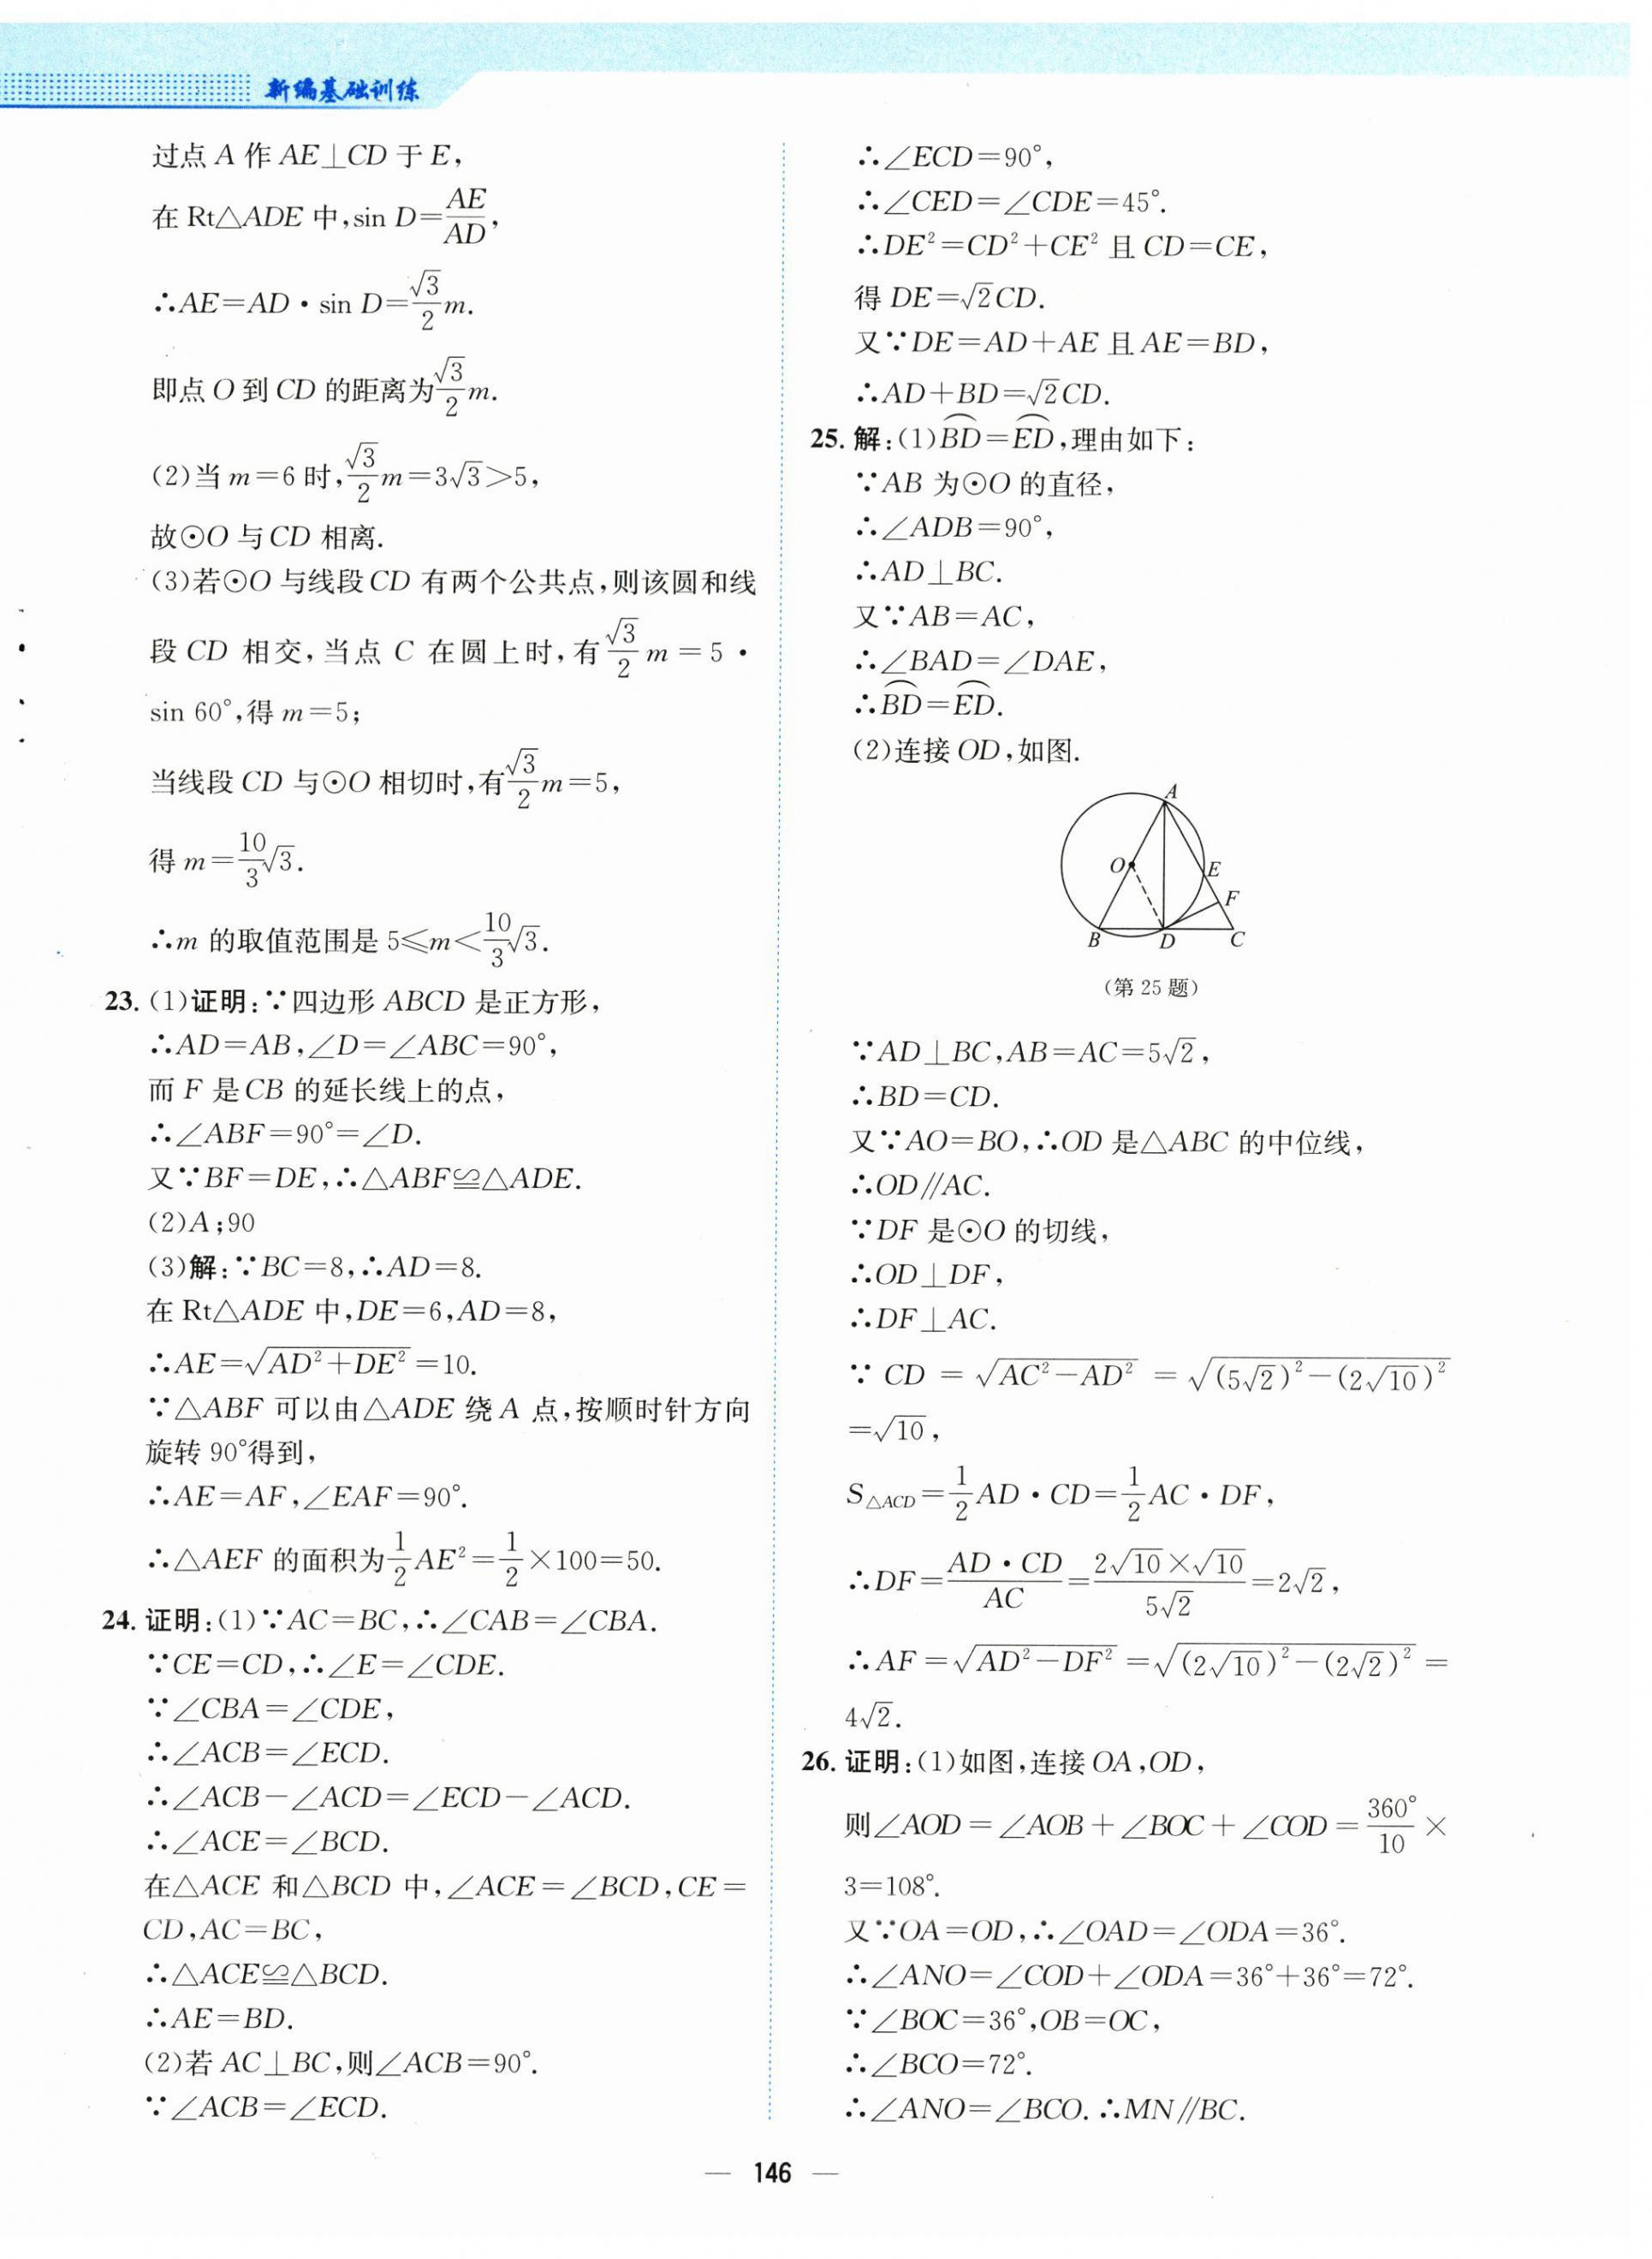 新编基础训练
过点 A 作 AE⊥CD 于 E,
在 Rt△ADE 中,sin D=AE/AD,
∴AE=AD·sin D=√3/2 m.
即点 O 到 CD 的距离为√3/2 m.
(2)当 m=6 时,√3/2 m=3√3>5,
故⊙O 与 CD 相离.
(3)若⊙O 与线段 CD 有两个公共点,则该圆和线
段 CD 相交,当点 C 在圆上时,有√3/2 m=5·
sin 60°,得 m=5;
当线段 CD 与⊙O 相切时,有√3/2 m=5,
得 m=10/3√3.
∴m 的取值范围是 5≤m<10/3√3.
23. (1)证明:∵四边形 ABCD 是正方形,
∴AD=AB,∠D=∠ABC=90°,
而 F 是 CB 的延长线上的点,
∴∠ABF=90°=∠D.
又∵BF=DE,∴△ABF≌△ADE.
(2)A;90
(3)解:∵BC=8,∴AD=8.
在 Rt△ADE 中,DE=6,AD=8,
∴AE=√(AD²+DE²)=10.
∵△ABF 可以由△ADE 绕 A 点,按顺时针方向
旋转 90°得到,
∴AE=AF,∠EAF=90°.
∴△AEF 的面积为1/2 AE²=1/2×100=50.
24. 证明:(1)∵AC=BC,∴∠CAB=∠CBA.
∵CE=CD,∴∠E=∠CDE.
∵∠CBA=∠CDE,
∴∠ACB=∠ECD.
∴∠ACB-∠ACD=∠ECD-∠ACD.
∴∠ACE=∠BCD.
在△ACE 和△BCD 中,∠ACE=∠BCD,CE=
CD,AC=BC,
∴△ACE≌△BCD.
∴AE=BD.
(2)若 AC⊥BC,则∠ACB=90°.
∵∠ACB=∠ECD.
∴∠ECD=90°,
∴∠CED=∠CDE=45°.
∴DE²=CD²+CE² 且 CD=CE,
得 DE=√2CD.
又∵DE=AD+AE 且 AE=BD,
∴AD+BD=√2CD.
25. 解:(1)BD⌒=ED⌒,理由如下:
∵AB 为⊙O 的直径,
∴∠ADB=90°,
∴AD⊥BC.
又∵AB=AC,
∴∠BAD=∠DAE,
∴BD⌒=ED⌒.
(2)连接 OD,如图.
A
O
E
F
B
D
C
(第 25 题)
∵AD⊥BC,AB=AC=5√2,
∴BD=CD.
又∵AO=BO,∴OD 是△ABC 的中位线,
∴OD∥AC.
∵DF 是⊙O 的切线,
∴OD⊥DF,
∴DF⊥AC.
∵ CD = √(AC²-AD²) = √((5√2)²-(2√10)²)
=√10,
S△ACD=1/2 AD·CD=1/2 AC·DF,
∴DF=AD·CD/AC=2√10×√10/5√2=2√2,
∴AF=√(AD²-DF²)=√((2√10)²-(2√2)²)=
4√2.
26. 证明:(1)如图,连接 OA,OD,
则∠AOD=∠AOB+∠BOC+∠COD=360°/10×
3=108°.
又∵OA=OD,∴∠OAD=∠ODA=36°.
∴∠ANO=∠COD+∠ODA=36°+36°=72°.
∵∠BOC=36°,OB=OC,
∴∠BCO=72°.
∴∠ANO=∠BCO. ∴MN∥BC.
— 146 —